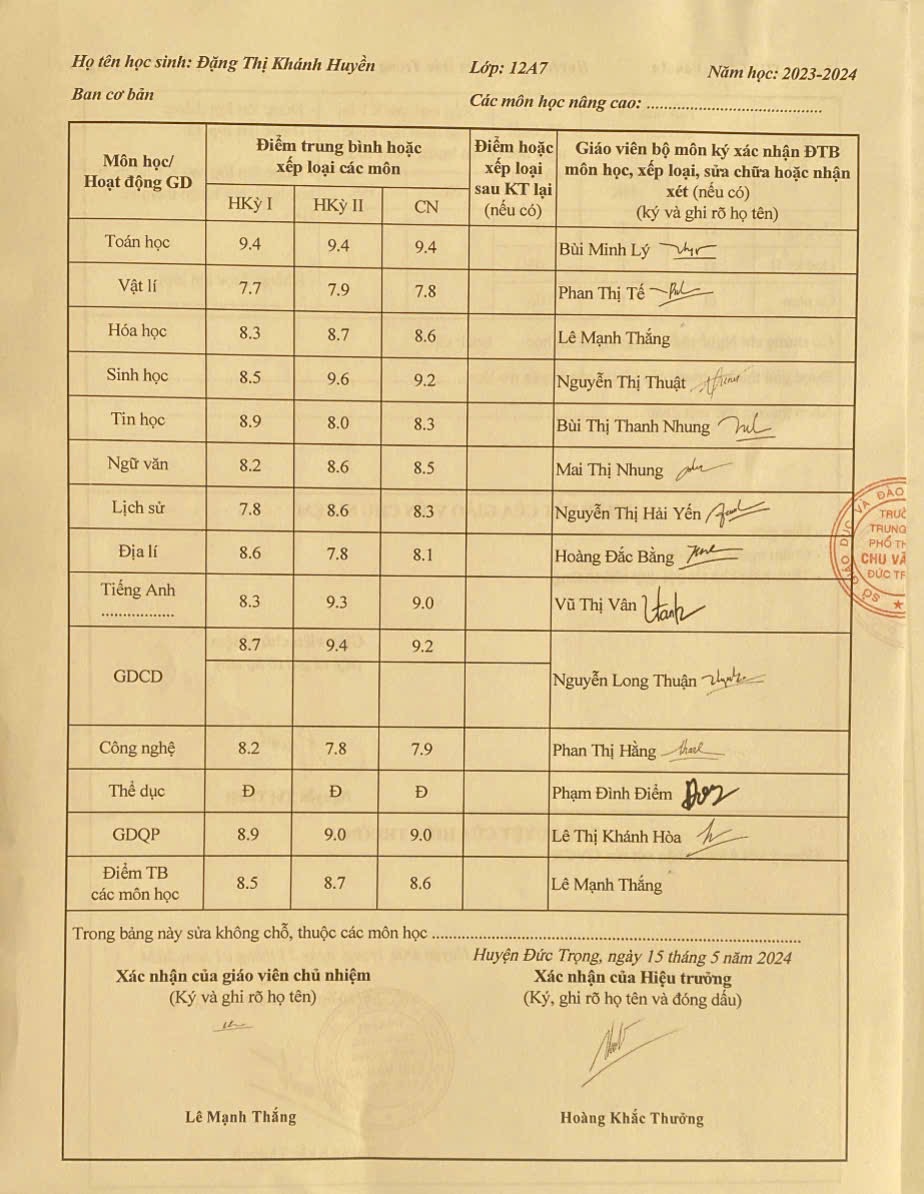 Họ tên học sinh: Đặng Thị Khánh Huyền Lớp: 12A7 Năm học: 2023-2024
Ban cơ bản Các môn học nâng cao: ........................................
Môn học/ Hoạt động GD | Điểm trung bình hoặc xếp loại các môn | Điểm hoặc xếp loại sau KT lại (nếu có) | Giáo viên bộ môn ký xác nhận ĐTB môn học, xếp loại, sửa chữa hoặc nhận xét (nếu có) (ký và ghi rõ họ tên)
HKỳ I HKỳ II CN
Toán học 9.4 9.4 9.4 Bùi Minh Lý
Vật lí 7.7 7.9 7.8 Phan Thị Tế
Hóa học 8.3 8.7 8.6 Lê Mạnh Thắng
Sinh học 8.5 9.6 9.2 Nguyễn Thị Thuật
Tin học 8.9 8.0 8.3 Bùi Thị Thanh Nhung
Ngữ văn 8.2 8.6 8.5 Mai Thị Nhung
Lịch sử 7.8 8.6 8.3 Nguyễn Thị Hải Yến
Địa lí 8.6 7.8 8.1 Hoàng Đắc Bằng
Tiếng Anh ................. 8.3 9.3 9.0 Vũ Thị Vân
GDCD 8.7 9.4 9.2 Nguyễn Long Thuận
Công nghệ 8.2 7.8 7.9 Phan Thị Hằng
Thể dục Đ Đ Đ Phạm Đình Điểm
GDQP 8.9 9.0 9.0 Lê Thị Khánh Hòa
Điểm TB các môn học 8.5 8.7 8.6 Lê Mạnh Thắng
VÀ ĐÀO
TRUNG
PHỔ TH
CHU VĂ
ĐỨC TR
Trong bảng này sửa không chỗ, thuộc các môn học ........................................
Huyện Đức Trọng, ngày 15 tháng 5 năm 2024
Xác nhận của giáo viên chủ nhiệm Xác nhận của Hiệu trưởng
(Ký và ghi rõ họ tên) (Ký, ghi rõ họ tên và đóng dấu)
Lê Mạnh Thắng Hoàng Khắc Thưởng